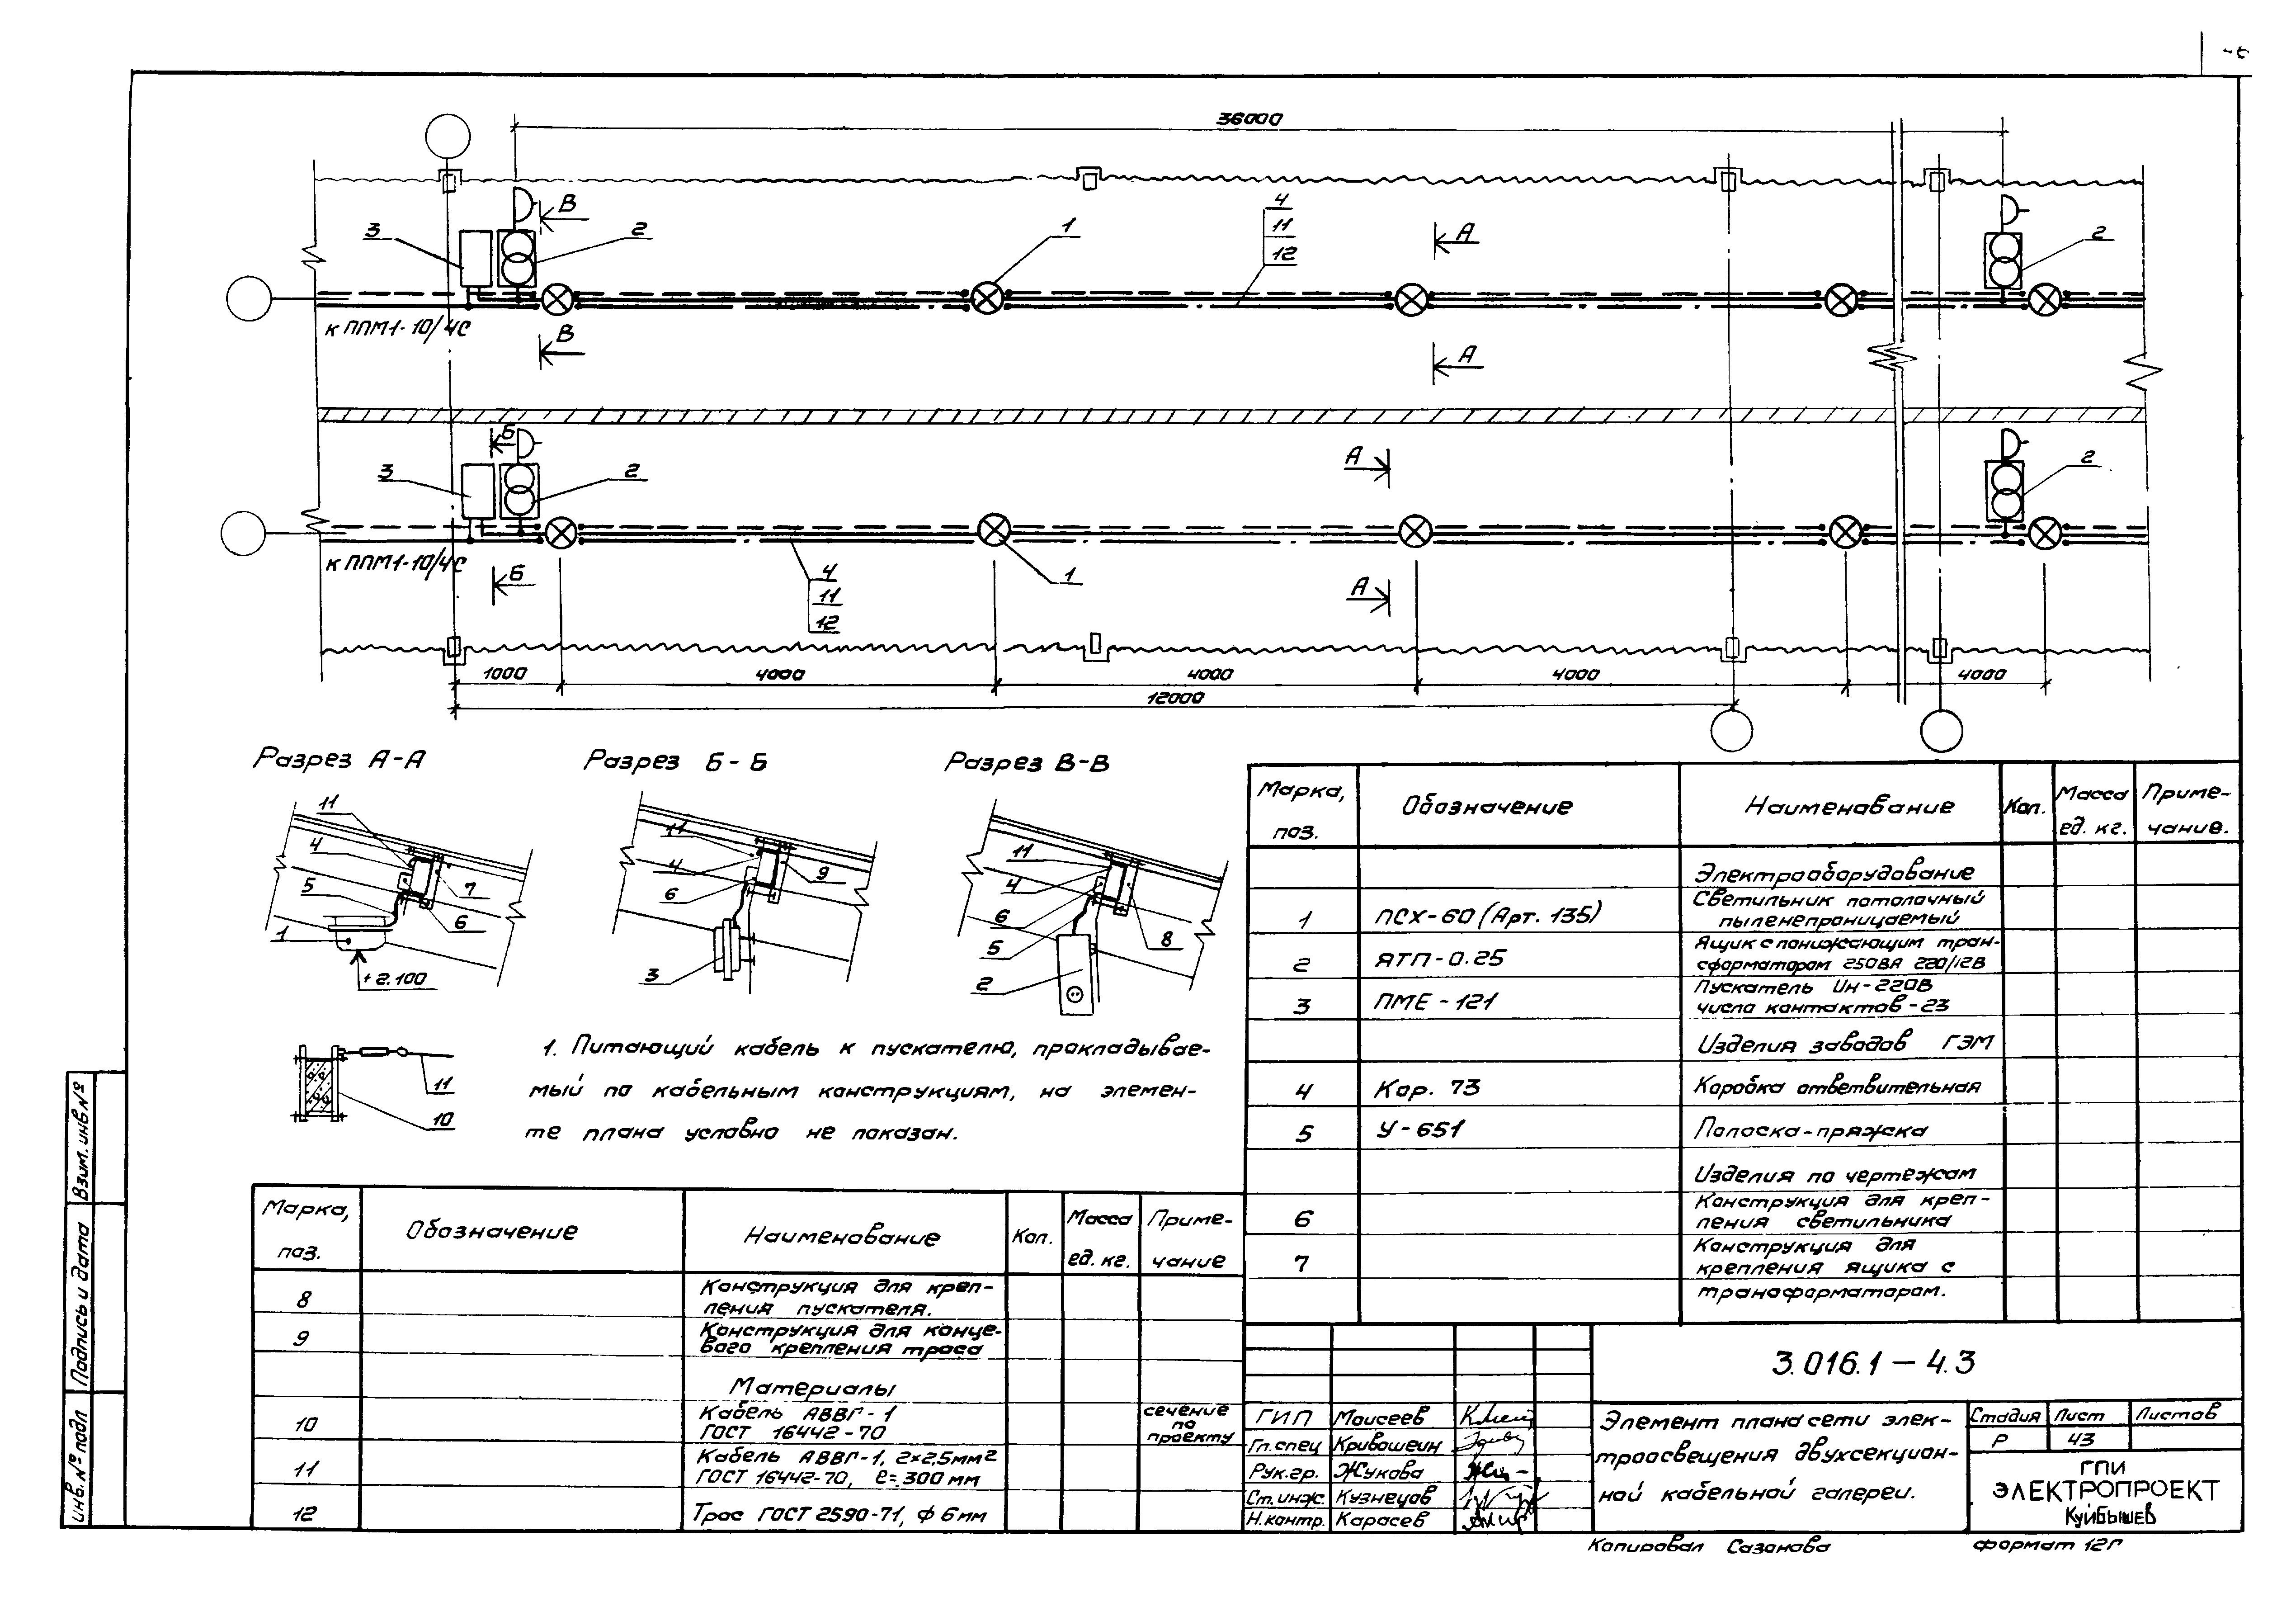 36000
В
3
2
1
4
11
12
А
2
к ППМ1-10/4С
В
А
Б
3
2
А
2
к ППМ1-10/4С
Б
4
11
12
1
А
1000
4000
4000
4000
4000
12000
Разрез А-А
Разрез Б-Б
Разрез В-В
11
4
5
7
6
1
+2.100
11
4
6
9
3
11
4
6
5
8
2
11
10
1. Питающий кабель к пускателю, прокладывае-
мый по кабельным конструкциям, на элемен-
те плана условно не показан.
Марка, поз.
Обозначение
Наименование
Кол.
Масса ед. кг.
Приме-чание.
Электрооборудование
1 ПСХ-60 (Арт. 135) Светильник потолочный
пыленепроницаемый
2 ЯТП-0.25 Ящик с понижающим тран-
сформатором 250ВА 220/12В
3 ПМЕ-121 Пускатель Uн-220В
число контактов-23
Изделия заводов ГЭМ
4 Кор. 73 Коробка ответвительная
5 У-651 Полоска-пряжка
Изделия по чертежам
6 Конструкция для креп-
ления светильника
7 Конструкция для
крепления ящика с
трансформатором.
Марка, поз.
Обозначение
Наименование
Кол.
Масса ед. кг.
Приме-чание
8 Конструкция для креп-
ления пускателя.
9 Конструкция для конце-
вого крепления троса
Материалы
10 Кабель АВВГ-1
ГОСТ 16442-70
сечение
по
проекту
11 Кабель АВВГ-1, 2×2,5мм2
ГОСТ 16442-70, ℓ=300 мм
12 Трос ГОСТ 2590-71, ф 6мм
3.016.1-4.3
ГИП Моисеев
Гл.спец Кривошеин
Рук.гр. Жукова
Ст.инж. Кузнецов
Н.контр. Карасев
Элемент плана сети элек-
троосвещения двухсекцион-
ной кабельной галереи.
Стадия Лист Листов
Р 43
ГПИ
ЭЛЕКТРОПРОЕКТ
Куйбышев
Копировал Сазонова
формат 12Г
Взам. инв.№
Подпись и дата
Инв.№ подл